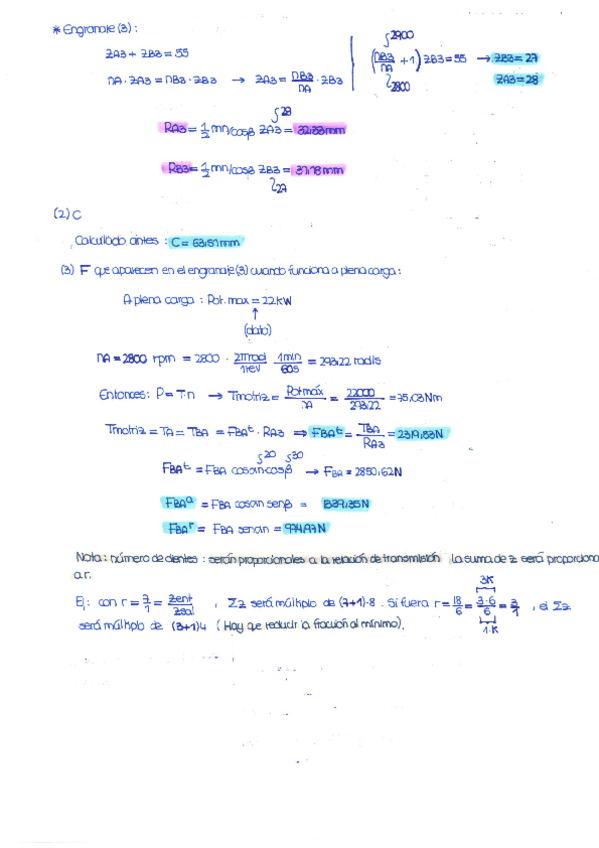 * Engranaje (3) :
ZA3 + ZB3 = 55
nA · ZA3 = nB3 · ZB3 → ZA3 = nB3/nA · ZB3
2900
(nB3/nA + 1) ZB3 = 55 → ZB3 = 27
2800
ZA3 = 28
28
RA3 = 1/2 mn/cosβ ZA3 = 32,33 mm
RB3 = 1/2 mn/cosβ ZB3 = 31,18 mm
27
(2) C
Calculado antes : C = 63,51 mm
(3) F que aparecen en el engranaje (3) cuando funciona a plena carga :
A plena carga : Pot. max = 22 kW
↑
(dato)
nA = 2800 rpm = 2800 · 2π rad/1 rev · 1 min/60s = 293,22 rad/s
Entonces : P = T·n → Tmotriz = Potmáx/nA = 22000/293,22 = 75,03 Nm
Tmotriz = TA = TBA = FBAᵗ · RA3 ⇒ FBAᵗ = TBA/RA3 = 2319,53 N
20 30
FBAᵗ = FBA cosαn cosβ → FBA = 2850,62 N
FBAᵃ = FBA cosαn senβ = 1339,35 N
FBAʳ = FBA senαn = 974,97 N
Nota : número de dientes : serán proporcionales a la relación de transmisión , la suma de z será proporciona
a r.
Ej : con r = 7/1 = Zent/Zsal , Σz será múltiplo de (7+1)·8 . Si fuera r = 18/6 = 3·6/6 = 3/1 , el Σz
3K
1·K
será múltiplo de (3+1)4 ( Hay que reducir la fracción al mínimo).